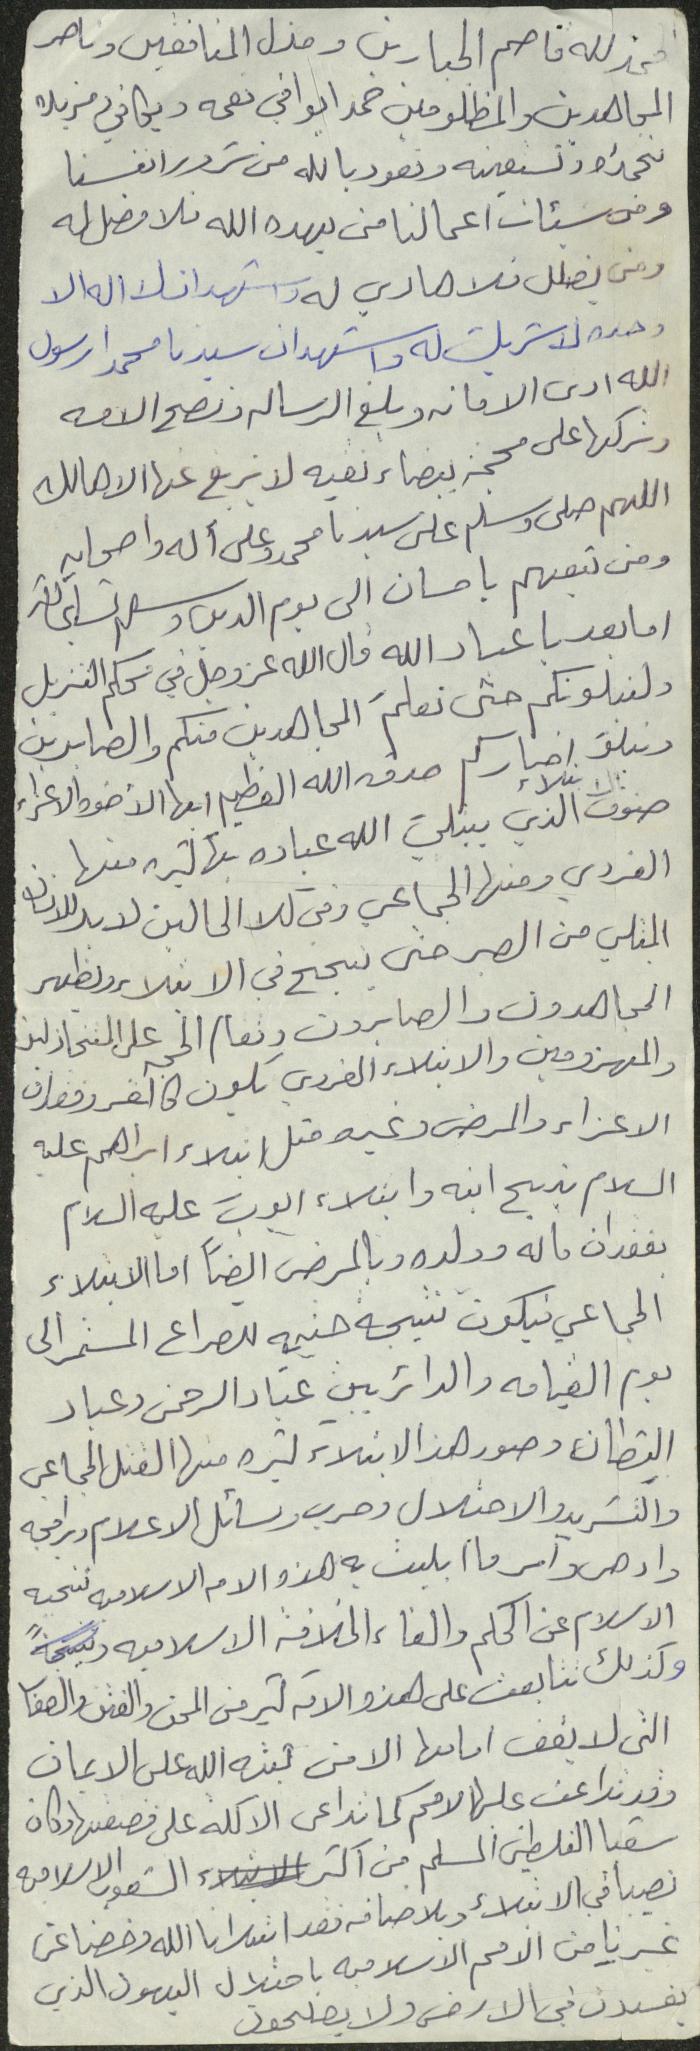 الحمد لله قاصم الجبارين ومذل المنافقين وناصر
المجاهدين والمظلومين حمدا يوافي نعمه ويكافي مزيده
نحمده ونستعينه ونعوذ بالله من شرور انفسنا
ومن سيئات اعمالنا من يهده الله فلا مضل له
ومن يضلل فلا هادي له واشهد ان لا اله الا
وحده لا شريك له واشهد ان سيدنا محمدا رسول
الله ادى الامانه وبلغ الرساله ونصح الامه
وتركها على محجة بيضاء نقيه لا يزيغ عنها الا هالك
اللهم صلى وسلم على سيدنا محمد وعلى آله واصحابه
ومن تبعهم باحسان الى يوم الدين وسلم تسليما
اما بعد يا عباد الله قال الله عز وجل في محكم التنزيل
ولنبلونكم حتى نعلم المجاهدين منكم والصابرين
ونبلو اخباركم صدق الله العظيم ايها الاخوه الاعزاء
صنوف الابتلاء الذي يبتلي الله عباده بها كثيره منها
الفردي ومنها الجماعي وفي كلا الحالين لا بد للانسان
المبتلي من الصبر حتى ينجح في الابتلاء ويظهر
المجاهدون والصابرون وتقام الحجه على المتخاذلين
والمهزومين والابتلاء الفردي يكون كالفقر وفقدان
الاعزاء والمرض وغيره مثل ابتلاء ابراهيم عليه
السلام بذبح ابنه وابتلاء ايوب عليه السلام
بفقدان ماله وولده وبالمرض ايضاً اما الابتلاء
الجماعي فيكون نتيجة حتميه للصراع المستمر الى
يوم القيامه والدائر بين عباد الرحمن وعباد
الشيطان وصور هذا الابتلاء كثيره منها القتل الجماعي
والتشريد والاحتلال وحرب وسائل الاعلام وبرامجه
وادهى وامر ما ابليت به هذه الامه الاسلاميه تنحيه
الاسلام عن الحكم والغاء الخلافه الاسلاميه ونتيجةً
وكذلك تتابعت على هذه الامه كثير من المحن والفتن والصعاب
التي لا يقف امامها الا من ثبته الله على الايمان
وقد تداعت عليها الامم كما تداعى الاكله على قصعتها وكان
شعبنا الفلسطيني المسلم من اكثر الشعوب الاسلاميه
نصيبا في الابتلاء وبلاضافه فقد ابتلانا الله وخصنا عن
غيرنا من الامم الاسلاميه باحتلال اليهود الذي
يفسدون في الارض ولا يصلحون